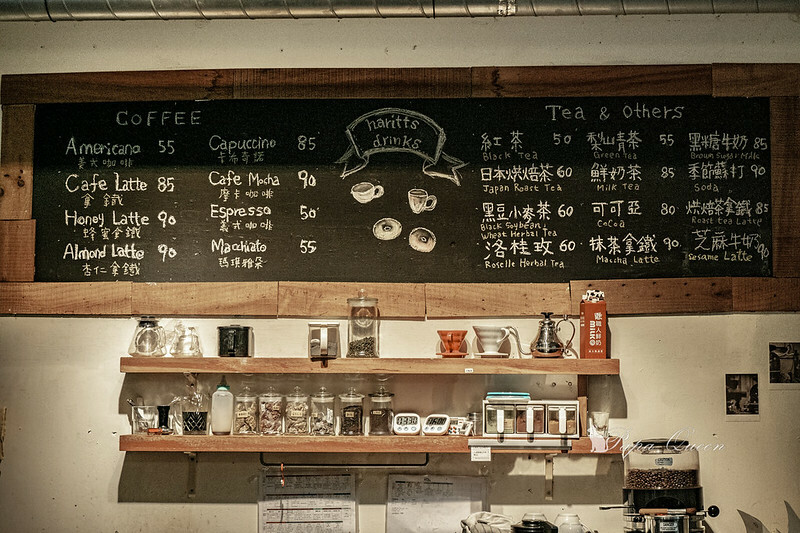 COFFEE
Americano 55
美式咖啡
Cafe Latte 85
拿鐵
Honey Latte 90
蜂蜜拿鐵
Almond Latte 90
杏仁拿鐵
Capuccino 85
卡布奇諾
Cafe Mocha 90
摩卡咖啡
Espresso 50
義式咖啡
Macchiato 55
瑪琪雅朵
haritts
drinks
Tea & Others
紅茶 50
Black Tea
日本烘焙茶 60
Japan Roast Tea
黑豆小麥茶 60
Black Soybean
Wheat Herbal Tea
洛桂玫 60
Roselle Herbal Tea
梨山青茶 55
Green Tea
鮮奶茶 85
Milk Tea
可可亞 80
CoCoa
抹茶拿鐵 90
Maccha Latte
黑糖牛奶 85
Brown Sugar Milk
季節蘇打 90
Soda
烘焙茶拿鐵 85
Roast tea Latte
芝麻牛奶 90
sesame Latte
職人鮮奶
milk
Papa Queen